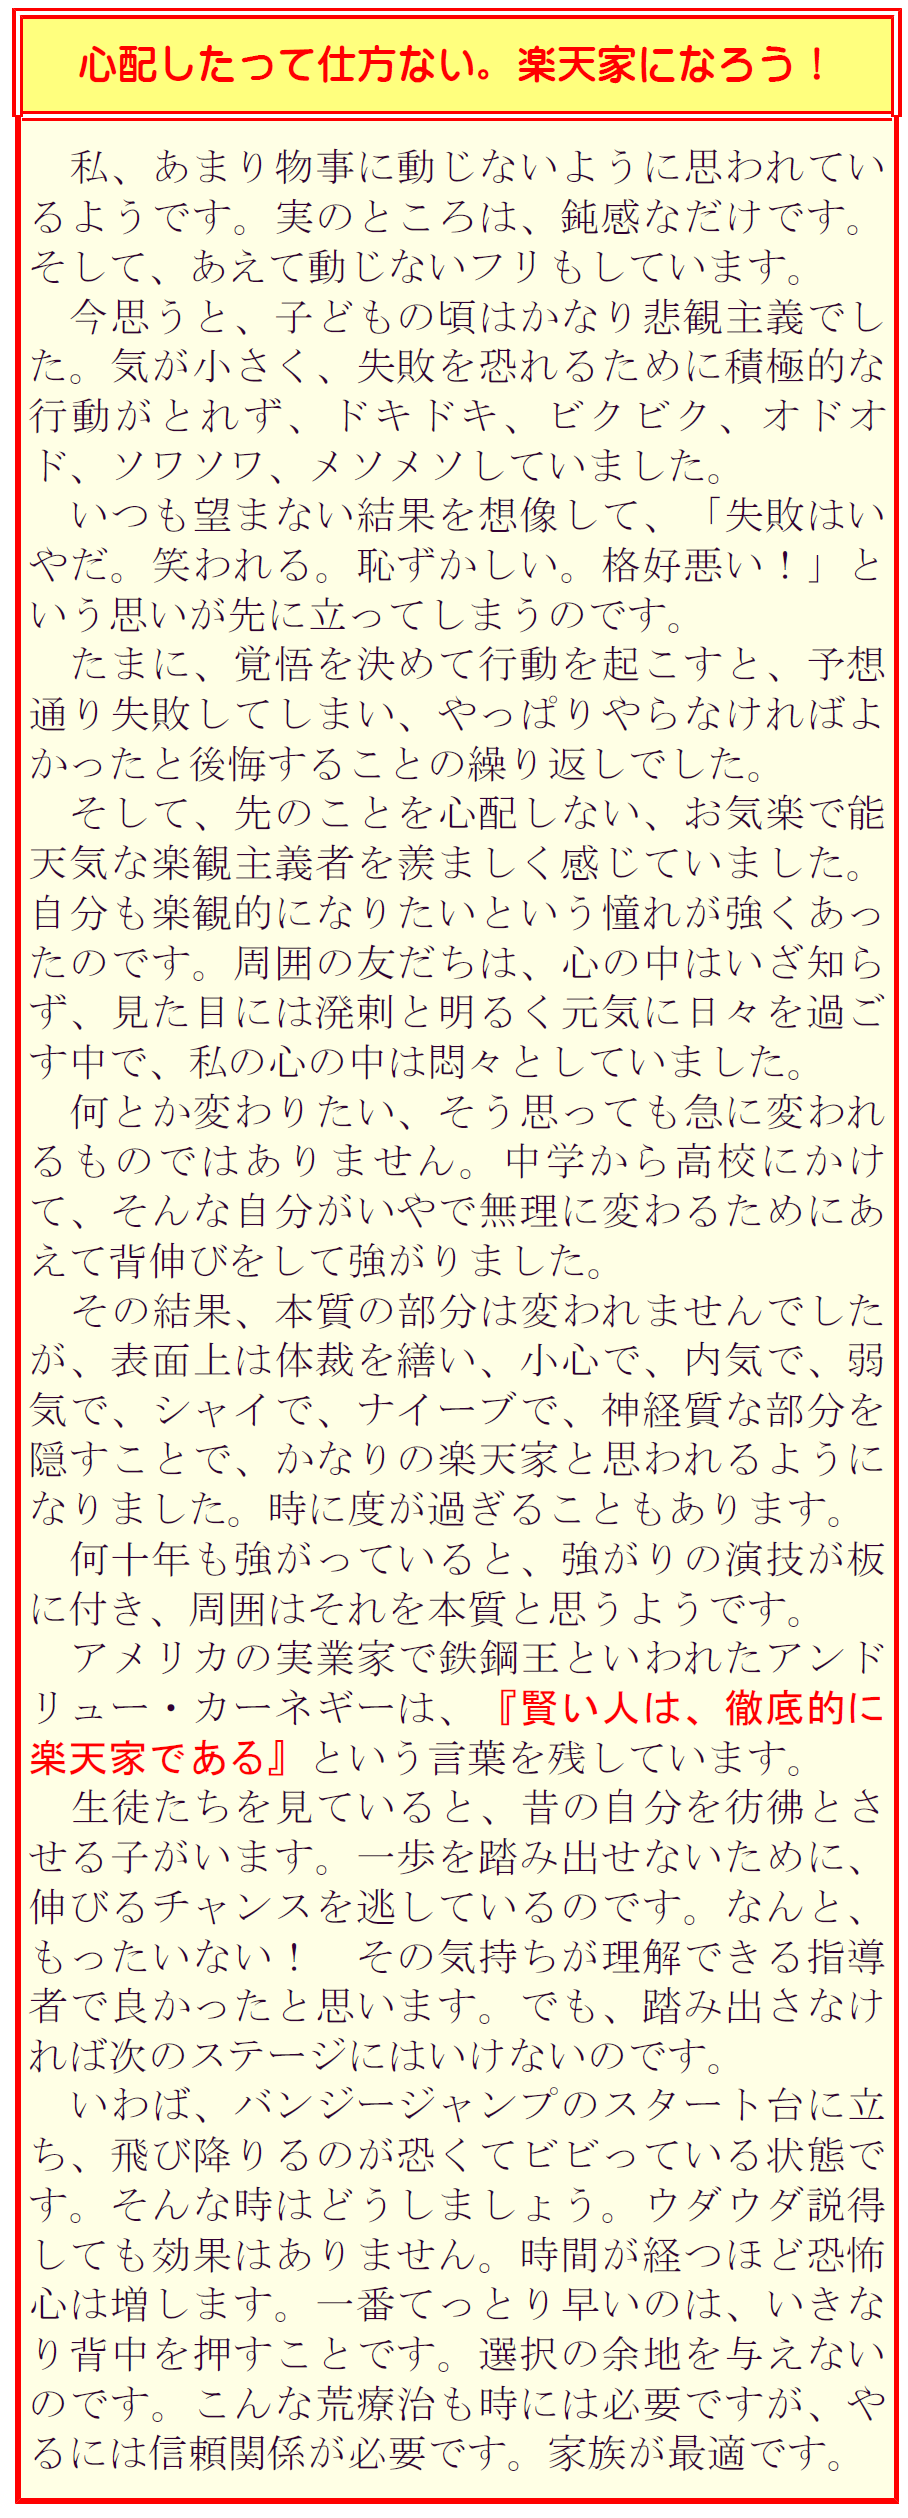 心配したって仕方ない。楽天家になろう！
　私、あまり物事に動じないように思われてい
るようです。実のところは、鈍感なだけです。
そして、あえて動じないフリもしています。
　今思うと、子どもの頃はかなり悲観主義でし
た。気が小さく、失敗を恐れるために積極的な
行動がとれず、ドキドキ、ビクビク、オドオ
ド、ソワソワ、メソメソしていました。
　いつも望まない結果を想像して、「失敗はい
やだ。笑われる。恥ずかしい。格好悪い！」と
いう思いが先に立ってしまうのです。
　たまに、覚悟を決めて行動を起こすと、予想
通り失敗してしまい、やっぱりやらなければよ
かったと後悔することの繰り返しでした。
　そして、先のことを心配しない、お気楽で能
天気な楽観主義者を羨ましく感じていました。
自分も楽観的になりたいという憧れが強くあっ
たのです。周囲の友だちは、心の中はいざ知ら
ず、見た目には溌剌と明るく元気に日々を過ご
す中で、私の心の中は悶々としていました。
　何とか変わりたい、そう思っても急に変われ
るものではありません。中学から高校にかけ
て、そんな自分がいやで無理に変わるためにあ
えて背伸びをして強がりました。
　その結果、本質の部分は変われませんでした
が、表面上は体裁を繕い、小心で、内気で、弱
気で、シャイで、ナイーブで、神経質な部分を
隠すことで、かなりの楽天家と思われるように
なりました。時に度が過ぎることもあります。
　何十年も強がっていると、強がりの演技が板
に付き、周囲はそれを本質と思うようです。
　アメリカの実業家で鉄鋼王といわれたアンド
リュー・カーネギーは、『賢い人は、徹底的に
楽天家である』という言葉を残しています。
　生徒たちを見ていると、昔の自分を彷彿とさ
せる子がいます。一歩を踏み出せないために、
伸びるチャンスを逃しているのです。なんと、
もったいない！　その気持ちが理解できる指導
者で良かったと思います。でも、踏み出さなけ
れば次のステージにはいけないのです。
　いわば、バンジージャンプのスタート台に立
ち、飛び降りるのが恐くてビビっている状態で
す。そんな時はどうしましょう。ウダウダ説得
しても効果はありません。時間が経つほど恐怖
心は増します。一番てっとり早いのは、いきな
り背中を押すことです。選択の余地を与えない
のです。こんな荒療治も時には必要ですが、や
るには信頼関係が必要です。家族が最適です。